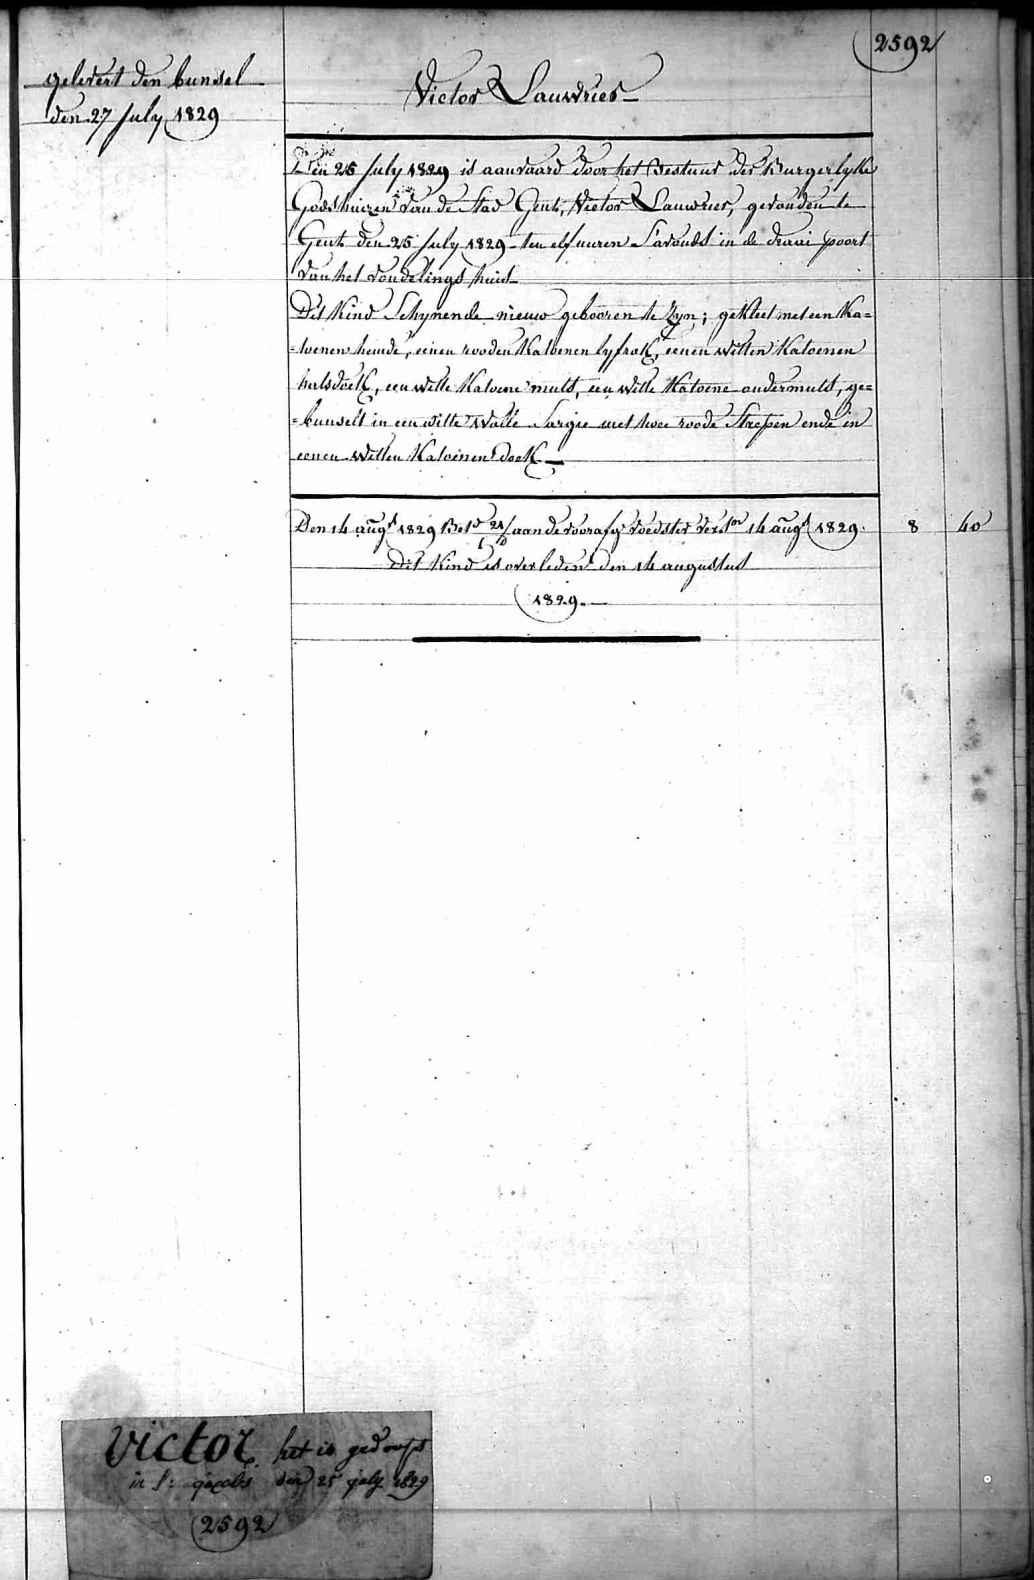 2592
gelevert den bunsel
den 27 july 1829
Victor Lauwries
Den 25 july 1829 is aanvaard door het Bestuur der Burgerlyke
Godshuizen van de Stad Gent, Victor Lauwries, gevonden te
Gent den 25 july 1829 ten elf uuren S'avonds in de draai poort
van het vondelings huis
Dit Kind Schynende nieuw gebooren te Zyn; gekleet met een Ka=
=toenen hemde, eenen rooden Katoenen lyfrok, eenen witten Katoenen
halsdoek, een witte Katoene muts, een witte Katoene ondermuts, ge=
=bunselt in een witte Wolle Sargie met twee roode Strepen ende in
eenen witten Katoenen doek
Den 14 augt 1829 Betd aan de voorafge voedster 14 augt 1829. 8 40
Dit Kind is overleden den 14 augustus
1829.
Victor het is gedoopt
in S: jacobs den 25 july 1829
2592